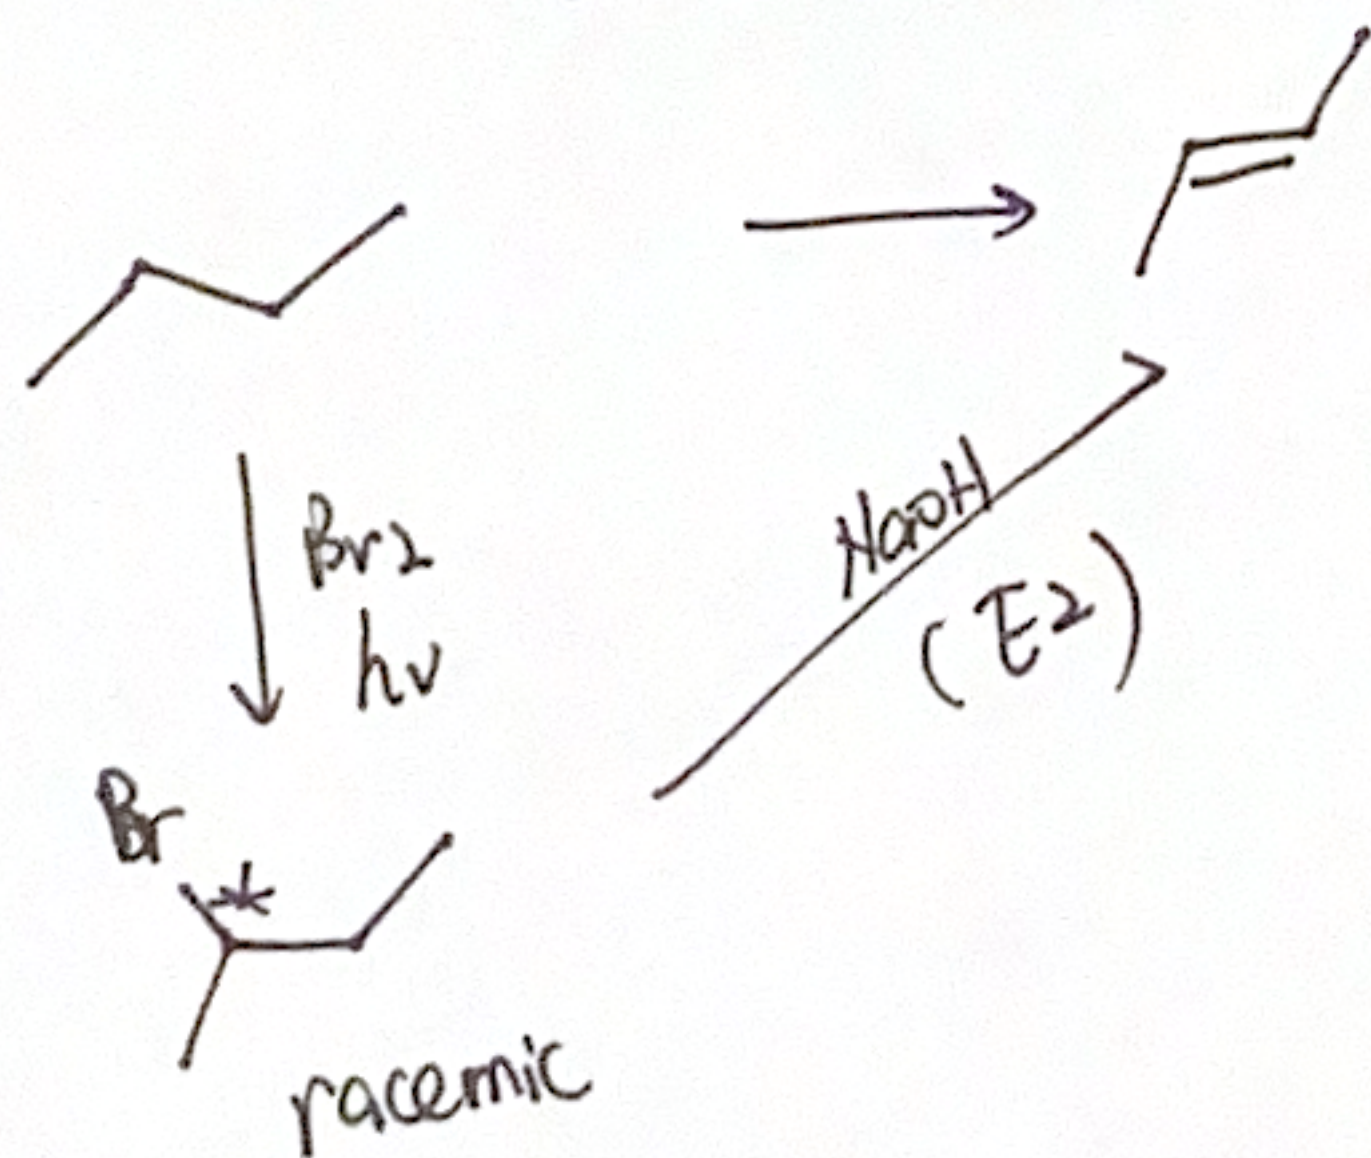 Br2
hν
NaOH
(E2)
Br *
racemic